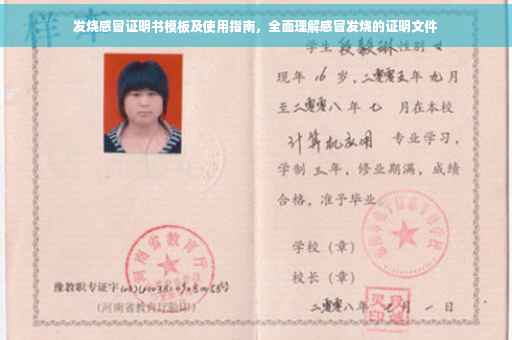 发烧感冒证明书模板及使用指南，全面理解感冒发烧的证明文件
样本
学生 段毅琳 性别 女
现年 16 岁，二零零五年 九月
至二零零八年 七 月在本校
计算机应用 专业学习，
学制 三 年，修业期满，成绩
合格，准予毕业
学校（章）
校长（章）
二零零八年 七 月 一 日
河南省教育厅
豫教职专证字
（河南省教育厅验印）